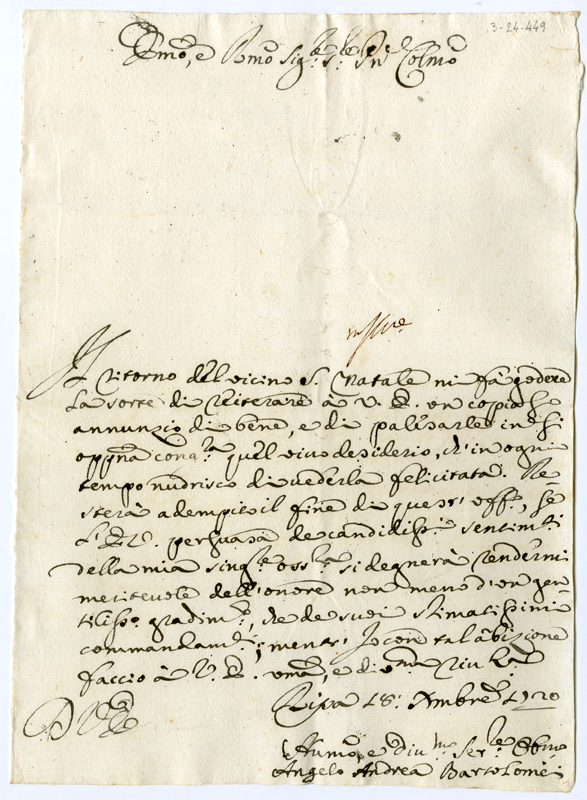 3-24-449
Emo, e Rmo Sig.re Sig.re Pne Colmo
Il ritorno del vicino S. Natale mi fà godere
la sorte di reiterare à V. E. un copioso
annunzio di bene, e di palesarle in ssi
oppna cong.ra quel vivo desiderio, ch'in ogni
tempo nudrisco di vederla felicitata. Re-
sterà adempito il fine di quest' uff.o, se
l'E.V. persuasa de candidiss.i sentim.ti
della mia sing.e oss.a si degnerà rendermi
meritevole dell'onore non meno d'un gen-
tiliss.o gradim.o, che de suoi stimatissimi
commandam.ti; mentre Io con tal ambizione
faccio à V. E. uma, e div.ma riv.za
Ripa 18: Xmbre 1720
D V E
Humo, e Divmo Ser.re Obmo
Angelo Andrea Bartolomei